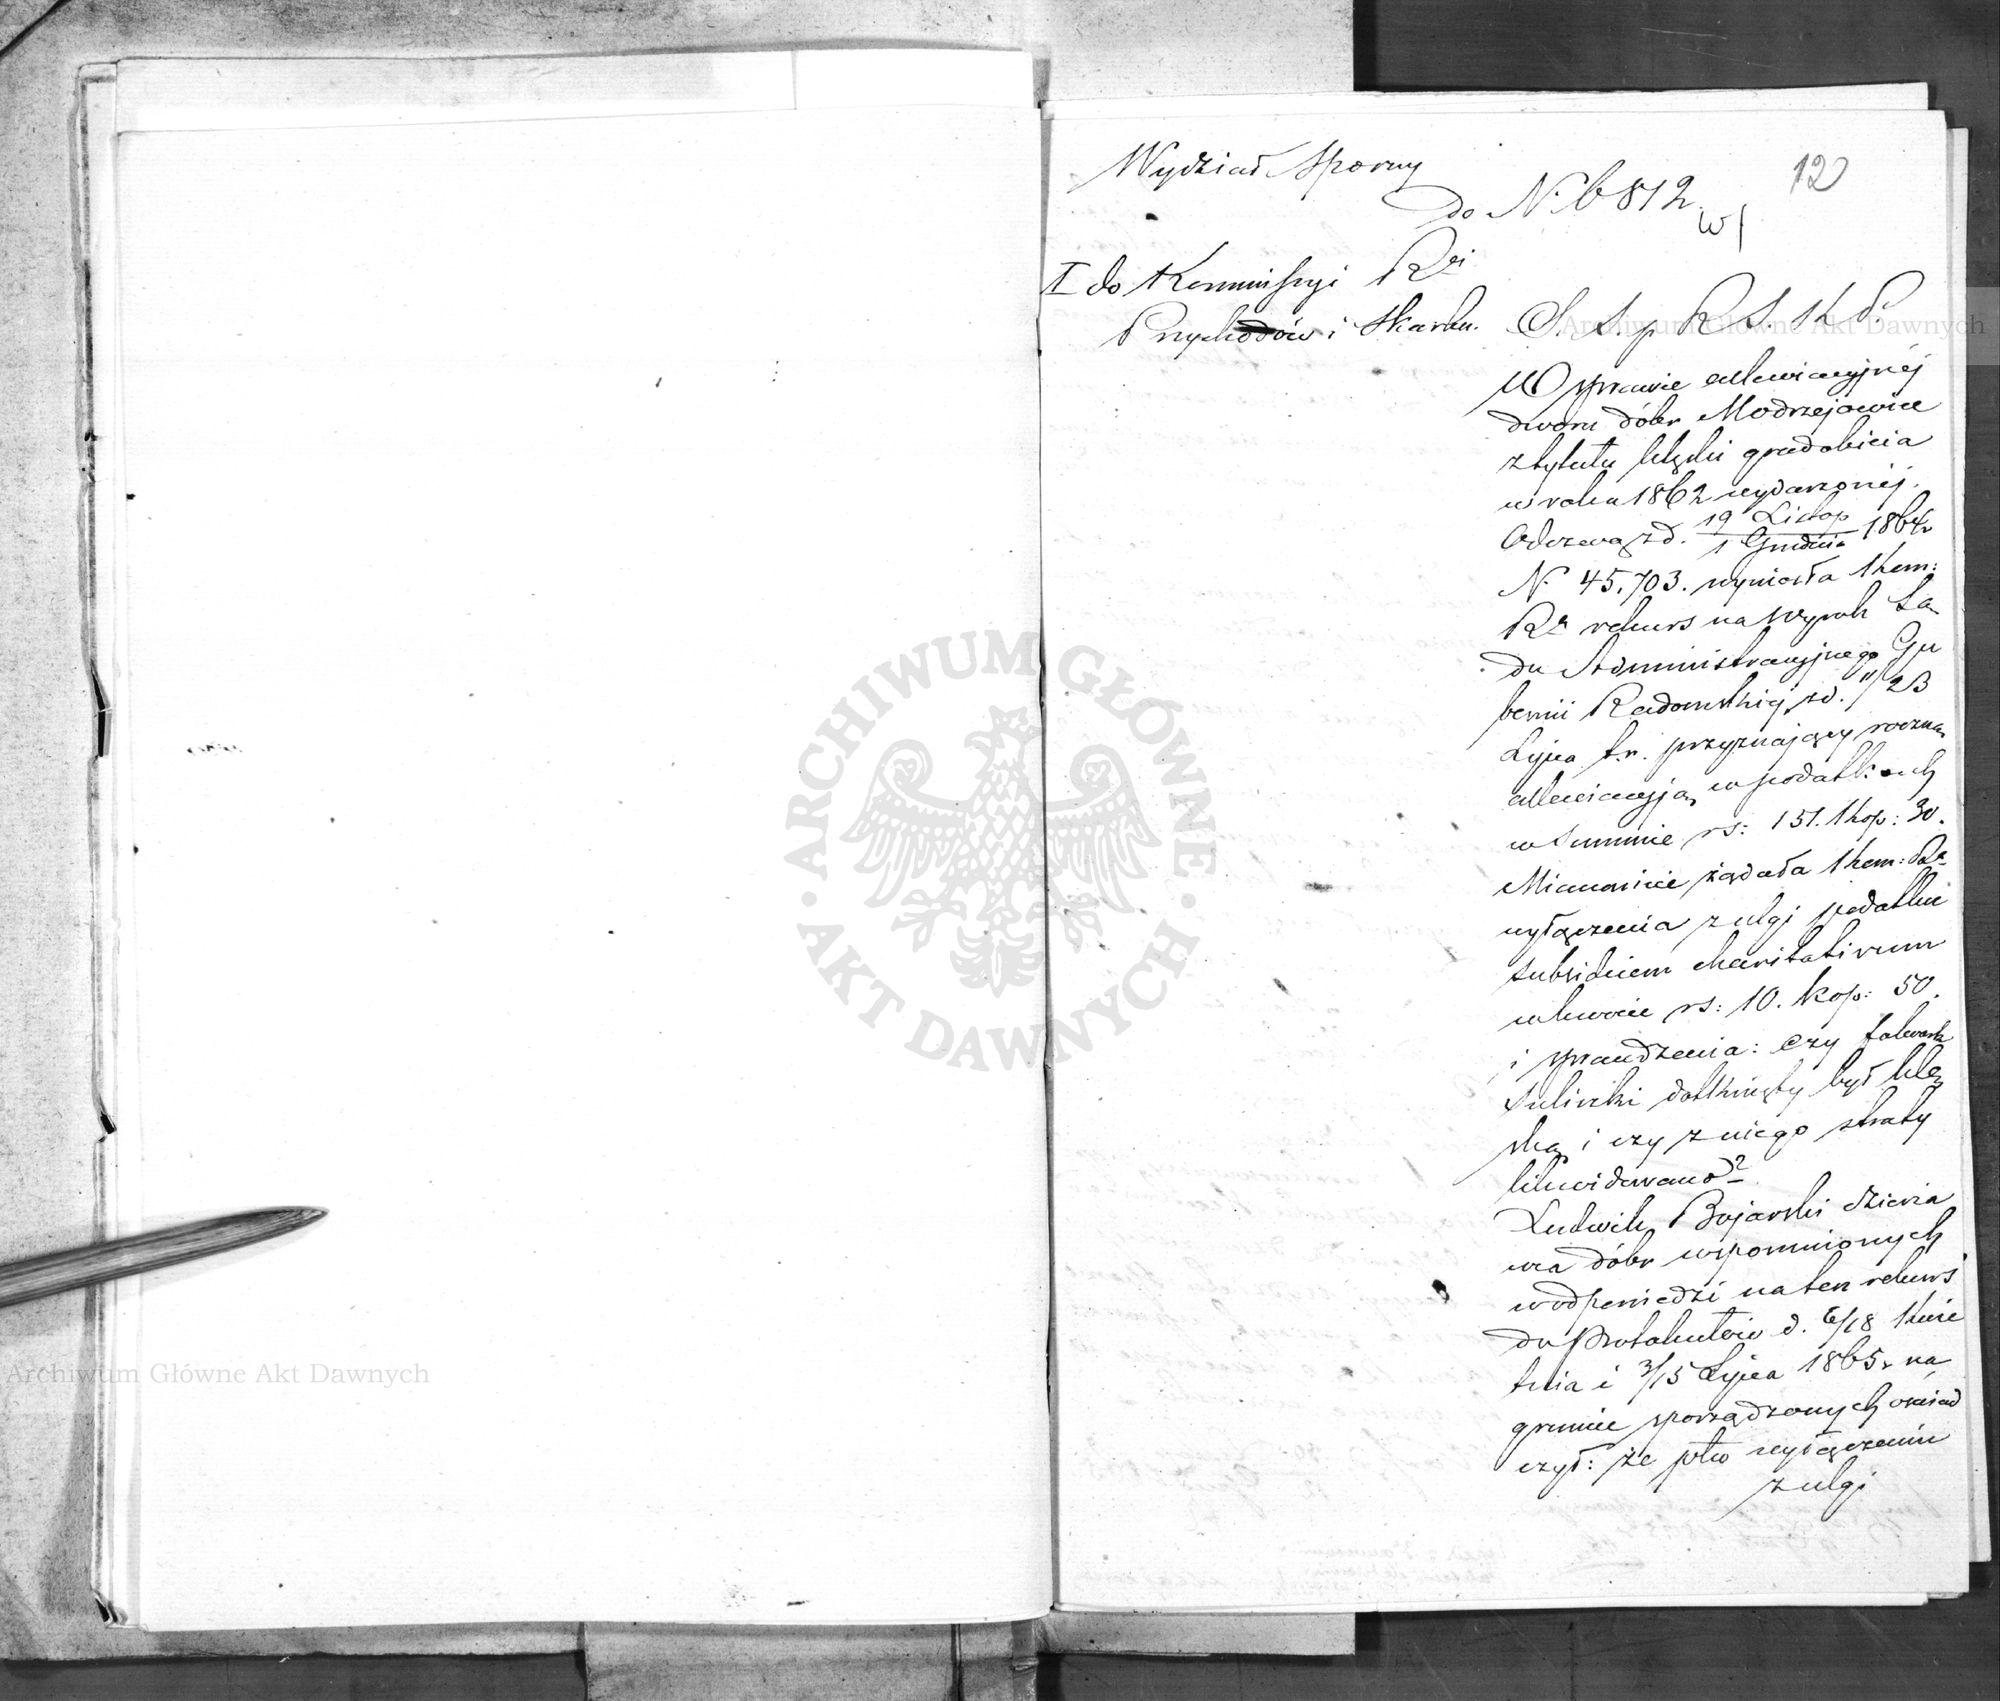 Wydział Sporny
12
do N. 6812
w/
I do Kommissyi Rei
Przychodów i Skarbu.
S. S. p K. S. K P.
W sprawie allewiacyjnéj
dworu dóbr Modrzejowice
z tytułu klęski gradobicia
w roku 1862 wydarzonéj.
Odezwą z d. 19 Listop / 1 Grudnia 1864r
N. 45.703. wyniosła Kom:
Ra rekurs na Wyrok Są
du Administracyjnego Gu
bernii Radomskiej z d. 11/23
Lipca t.r. przyznający roczną
allewiacyją w podatkach
w summie rs: 151. kop: 30.
Mianowicie żądała Kom: Ra
wyłączenia z ulgi podatku
subsidium charitativum
w kwocie rs: 10. kop: 50.
i sprawdzenia: czy folwark
dotknięty był klę
ską i czy z niego straty
likwidowano?
Ludwik Bojarski dzierża
wca dóbr wspomnionych
w odpowiedzi na ten rekurs
do Protokułów d. 6/18 Kwie
tnia i 3/15 Lipca 1865r na
gruncie sporządzonych oświad
czył: że co wyłączenia
z ulgi
Archiwum Główne Akt Dawnych
Archiwum Główne Akt Dawnych
ARCHIWUM GŁÓWNE AKT DAWNYCH